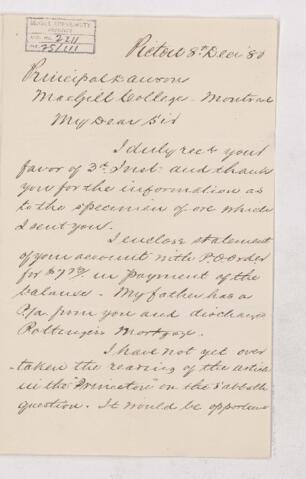 McGILL UNIVERSITY
ARCHIVES
ACC. NO. 2211
REF. 25/111
Pictou 8th Decr '80
Principal Dawson
MacGill College - Montreal
My Dear Sir
I duly recd your
favor of 3d Inst. and thank
you for the information as
to the specimen of ore which
I sent you.
I enclose statement
of your account with P.O order
for in payment of the
balance. My father has a
P/a from you and discharges
Pottinger's Mortgage.
I have not yet over
-taken the reading of the article
in the "Princeton" on the Sabbath
question. It would be opportune